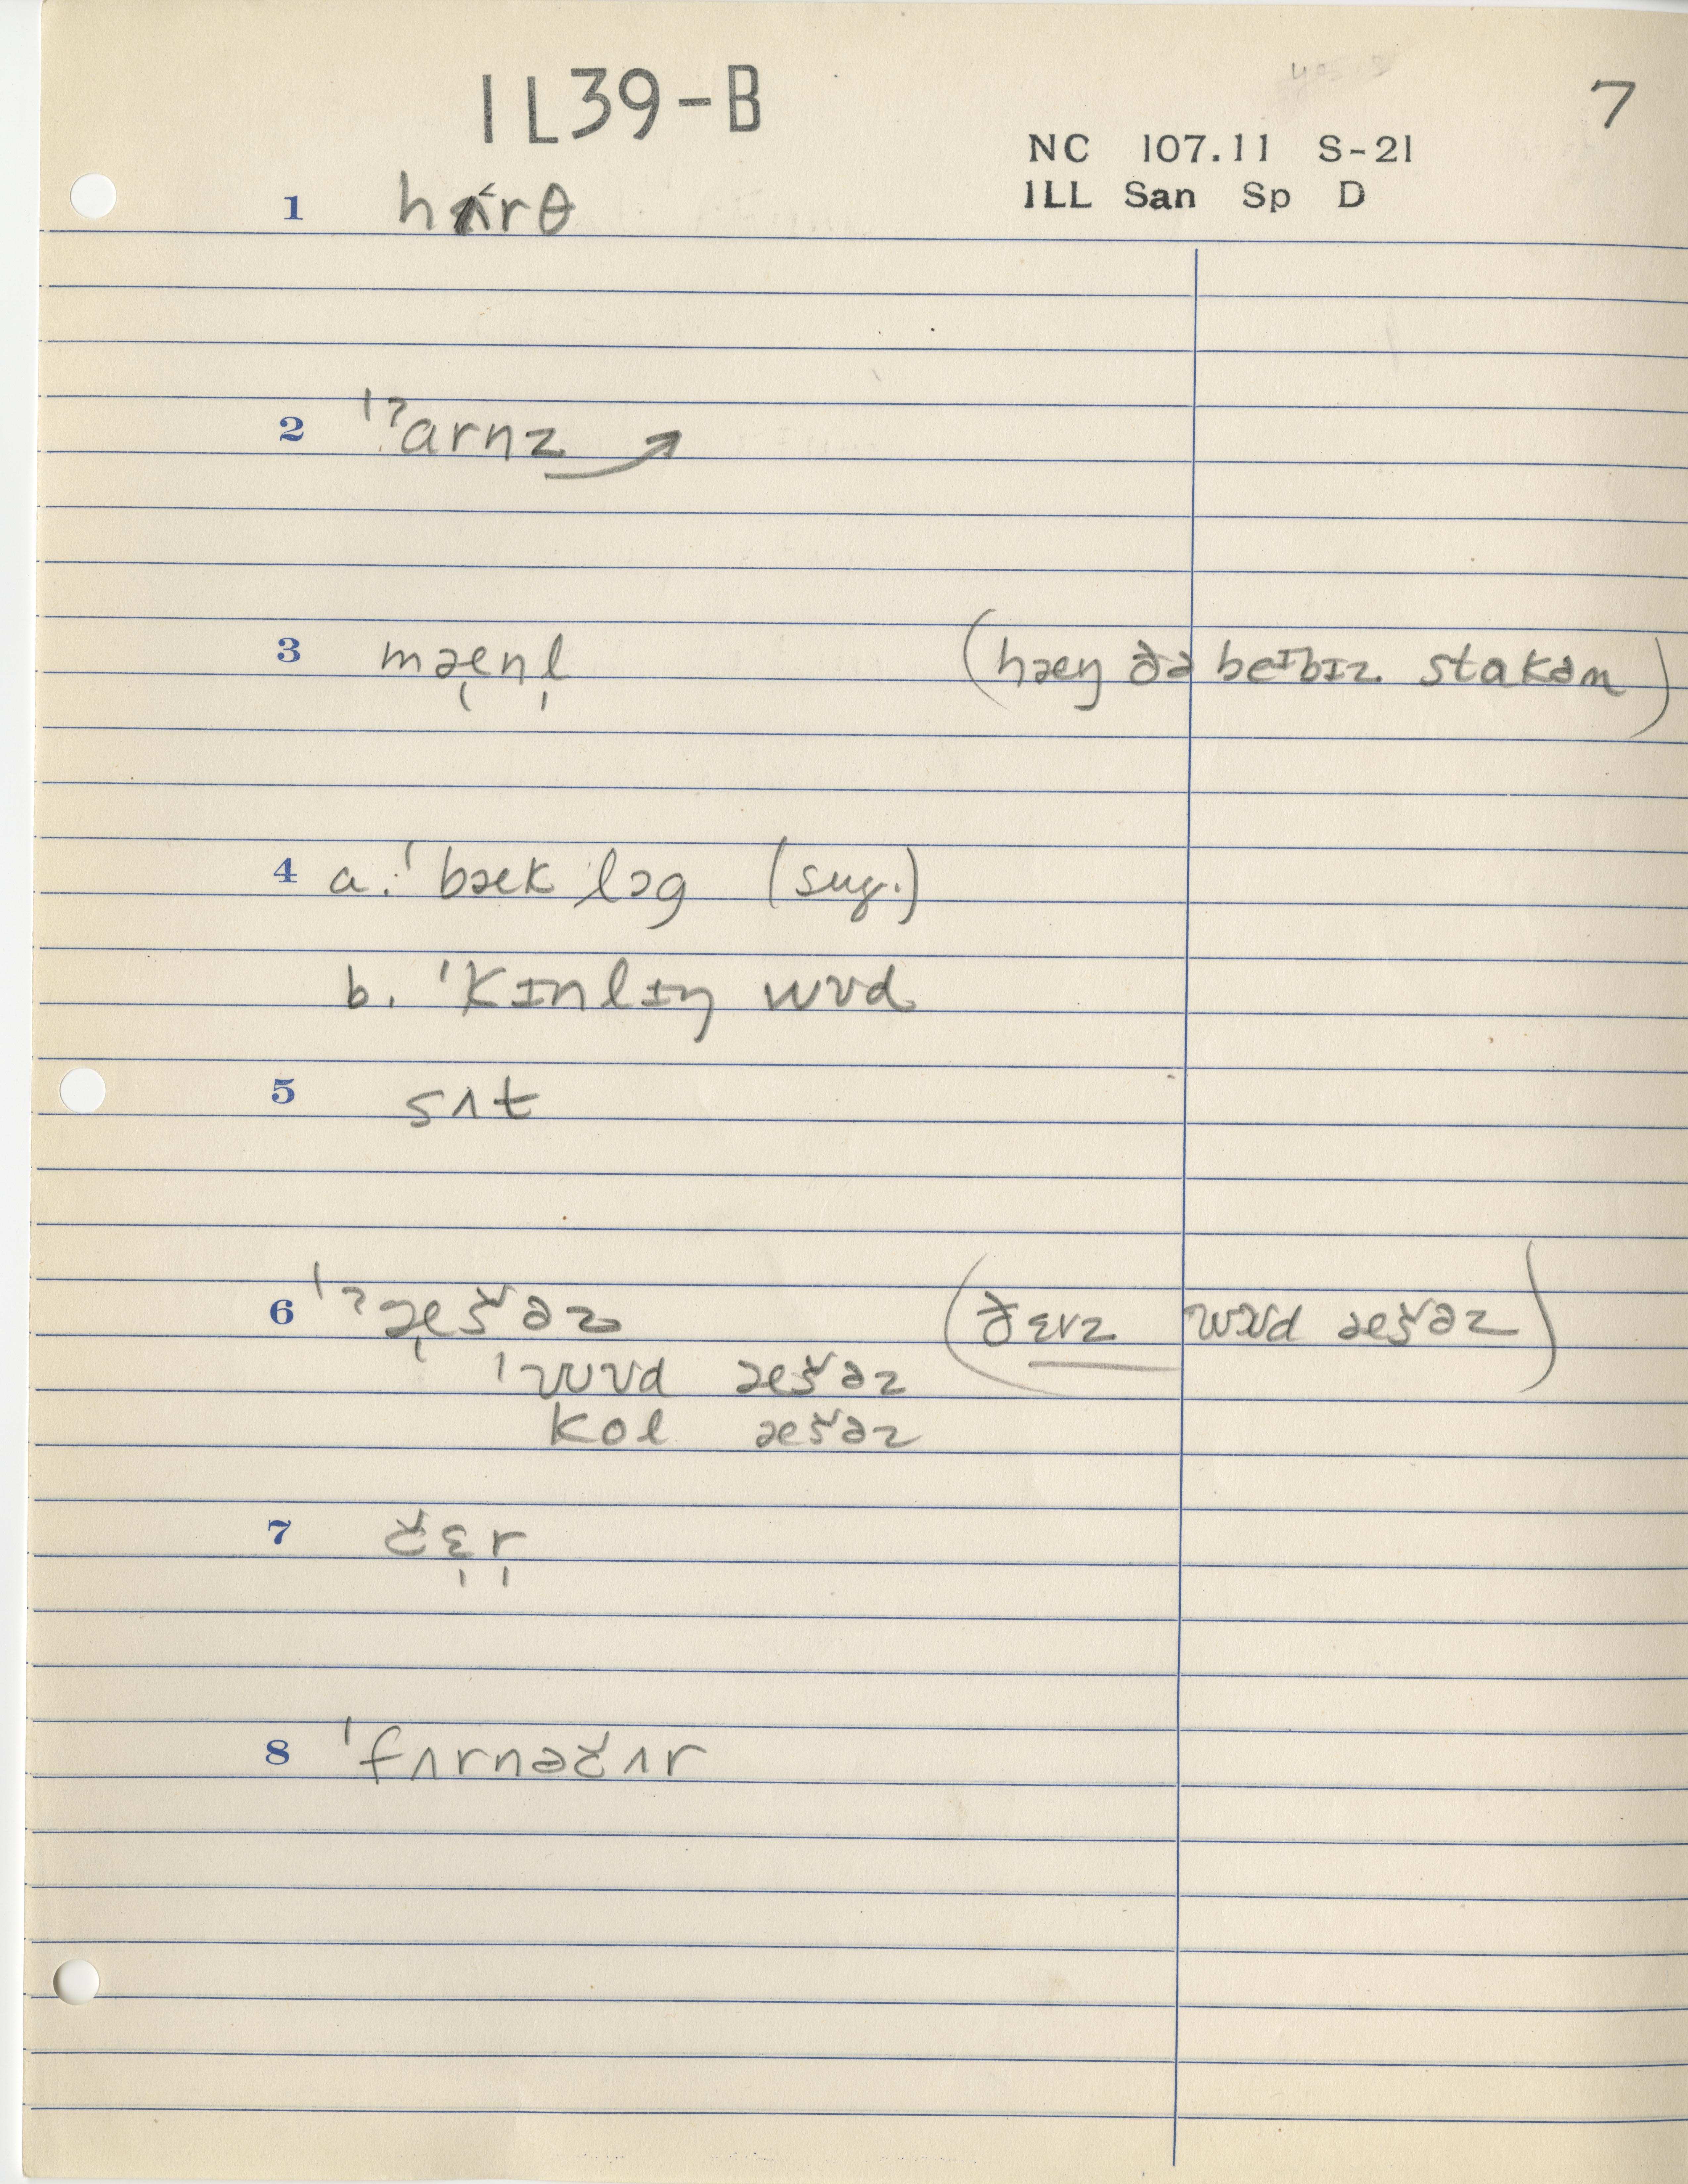 IL39-B
7
NC 107.11 S-21
ILL San Sp D
1 hʌrθ
2 ˈʔarnz
3 mæ̩nl̩ (hæŋ ðə beɪbɪz stakəm)
4 a. ˈbæk lɔg (sug.)
b. ˈkɪnlɪŋ wʊd
5 sʌt
6 ˈʔæ̩šəz (ðɛrz wʊd æšəz)
ˈwʊd æšəz
kol æšəz
7 čɛ̩r̩
8 ˈfʌrnəčʌr